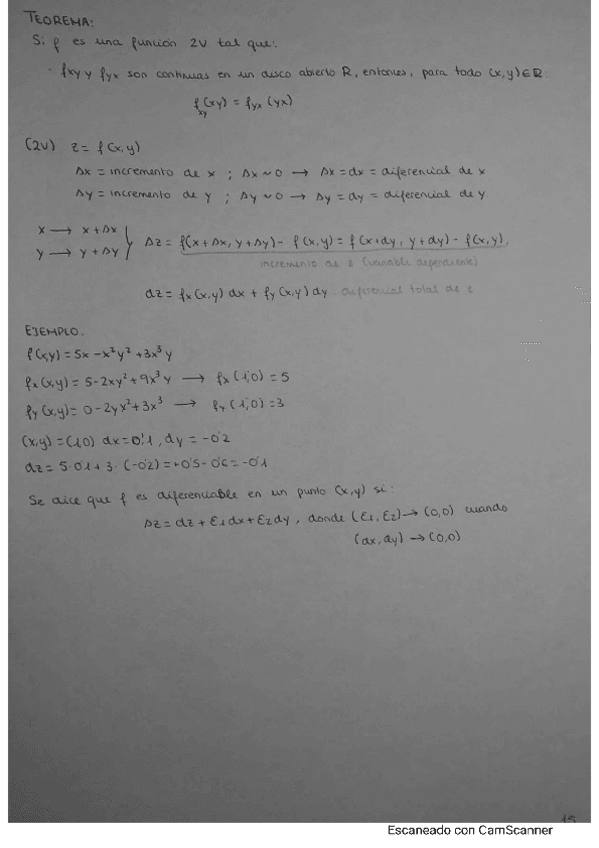 TEOREMA:
Si f es una función 2V tal que:
· fxy y fyx son continuas en un disco abierto R, entonces, para todo (x,y)∈R:
fxy(xy) = fyx(yx)
(2V) z = f(x,y)
Δx = incremento de x ; Δx ~ 0 → Δx = dx = diferencial de x
Δy = incremento de y ; Δy ~ 0 → Δy = dy = diferencial de y.
x → x+Δx
y → y+Δy } Δz = f(x+Δx, y+Δy) - f(x,y) = f(x+dy, y+dy) - f(x,y).
incremento de z (variable dependiente)
dz = fx(x,y) dx + fy(x,y) dy diferencial total de z
EJEMPLO.
f(x,y) = 5x - x²y² + 3x³y
fx(x,y) = 5 - 2xy² + 9x³y → fx(1,0) = 5
fy(x,y) = 0 - 2yx² + 3x³ → fy(1,0) = 3
(x,y) = (1,0) dx = 0'1, dy = -0'2
dz = 5·0'1 + 3·(-0'2) = +0'5 - 0'6 = -0'1
Se dice que f es diferenciable en un punto (x,y) si:
Δz = dz + ε1dx + ε2dy, donde (ε1, ε2) → (0,0) cuando
(dx, dy) → (0,0)
15
Escaneado con CamScanner